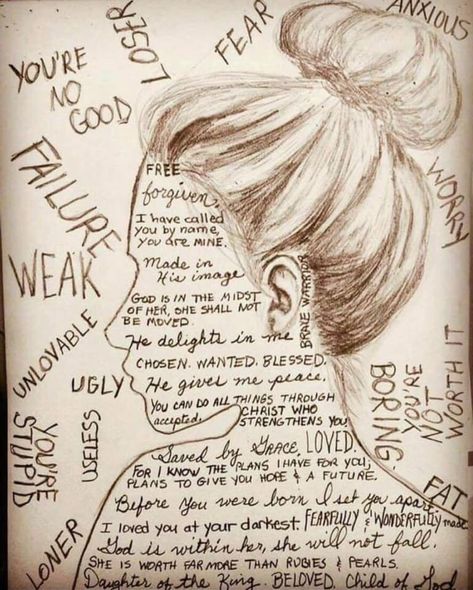 LOSER
FEAR
ANXIOUS
YOU'RE
NO
GOOD
FAILURE
WEAK
UNLOVABLE
UGLY
USELESS
YOU'RE
STUPID
LONER
WORRY
YOU'RE
NOT
WORTH IT
BORING
FAT
FREE
forgiven,
I have called
you by name,
you are MINE.
Made in
His image
GOD IS IN THE MIDST
OF HER, SHE SHALL NOT
BE MOVED.
BRAVE WARRIOR
He delights in me
CHOSEN. WANTED. BLESSED.
He gives me peace.
YOU CAN DO ALL THINGS THROUGH
CHRIST WHO
accepted,
STRENGTHENS YOU
Saved by Grace, LOVED.
FOR I KNOW THE PLANS I HAVE FOR YOU;
PLANS TO GIVE YOU HOPE & A FUTURE.
Before you were born I set you apart
I loved you at your darkest. FEARFULLY & WONDERFULLY made
God is within her, she will not fall.
SHE IS WORTH FAR MORE THAN RUBIES & PEARLS.
Daughter of the King. BELOVED. Child of God